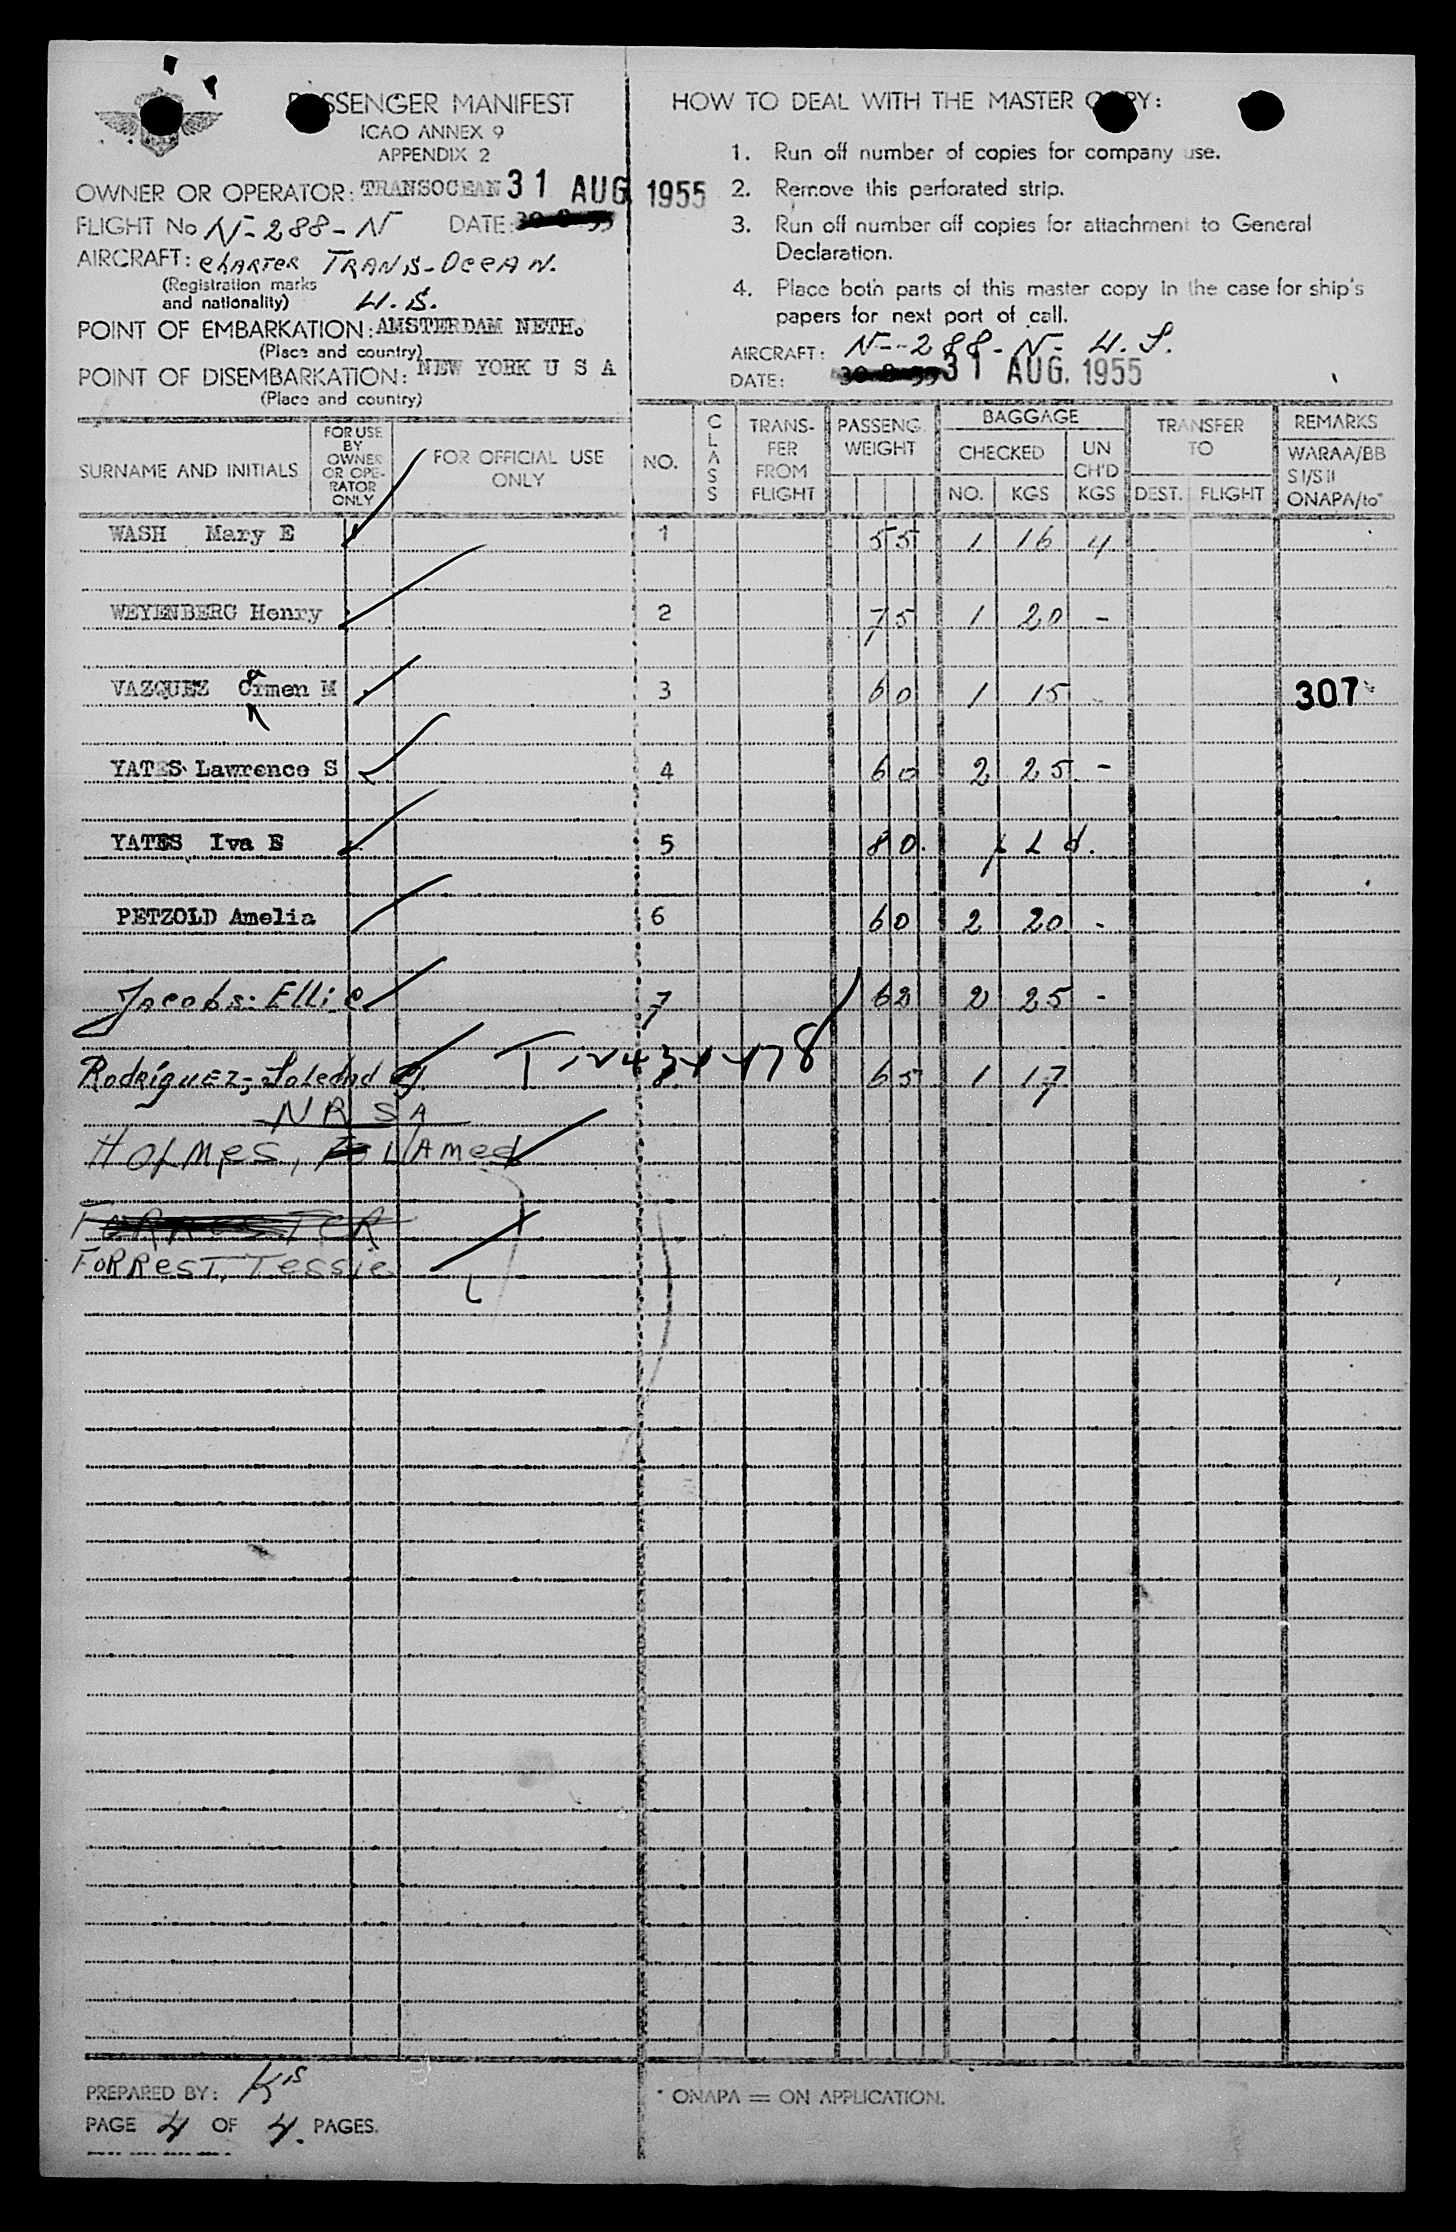 PASSENGER MANIFEST
ICAO ANNEX 9
APPENDIX 2
OWNER OR OPERATOR: TRANSOCEAN 31 AUG. 1955
FLIGHT No N-288-N DATE: 30-8-55
AIRCRAFT: CHARTER TRANS-OCEAN.
(Registration marks
and nationality) U.S.
POINT OF EMBARKATION: AMSTERDAM NETH.
(Place and country)
POINT OF DISEMBARKATION: NEW YORK U S A
(Place and country)
HOW TO DEAL WITH THE MASTER COPY:
1. Run off number of copies for company use.
2. Remove this perforated strip.
3. Run off number off copies for attachment to General
Declaration.
4. Place both parts of this master copy in the case for ship's
papers for next port of call.
AIRCRAFT: N--288-N- U.S.
DATE: 30-8-55 31 AUG. 1955
SURNAME AND INITIALS
FOR USE
BY
OWNER
OR OPE-
RATOR
ONLY
FOR OFFICIAL USE
ONLY
NO.
CLASS
TRANS-
FER
FROM
FLIGHT
PASSENG.
WEIGHT
BAGGAGE
CHECKED
NO. KGS
UN
CH'D
KGS
TRANSFER
TO
DEST. FLIGHT
REMARKS
WARAA/BB
SI/SII
ONAPA/to*
WASH Mary E 1 55 1 16 4
WEYENBERG Henry 2 75 1 20 -
VAZQUEZ Carmen M 3 60 1 15 - 307
YATES Lawrence S 4 60 2 25 -
YATES Iva E 5 80. pld.
PETZOLD Amelia 6 60 2 20 -
Jacobs: Ellie 7 62 2 25 -
Rodriguez, Soledad 8 65 1 17
NR SA
HOLMES, JAMES
FORRESTER
FORREST, Tessie
PREPARED BY: Ks
PAGE 4 OF 4. PAGES.
* ONAPA = ON APPLICATION.